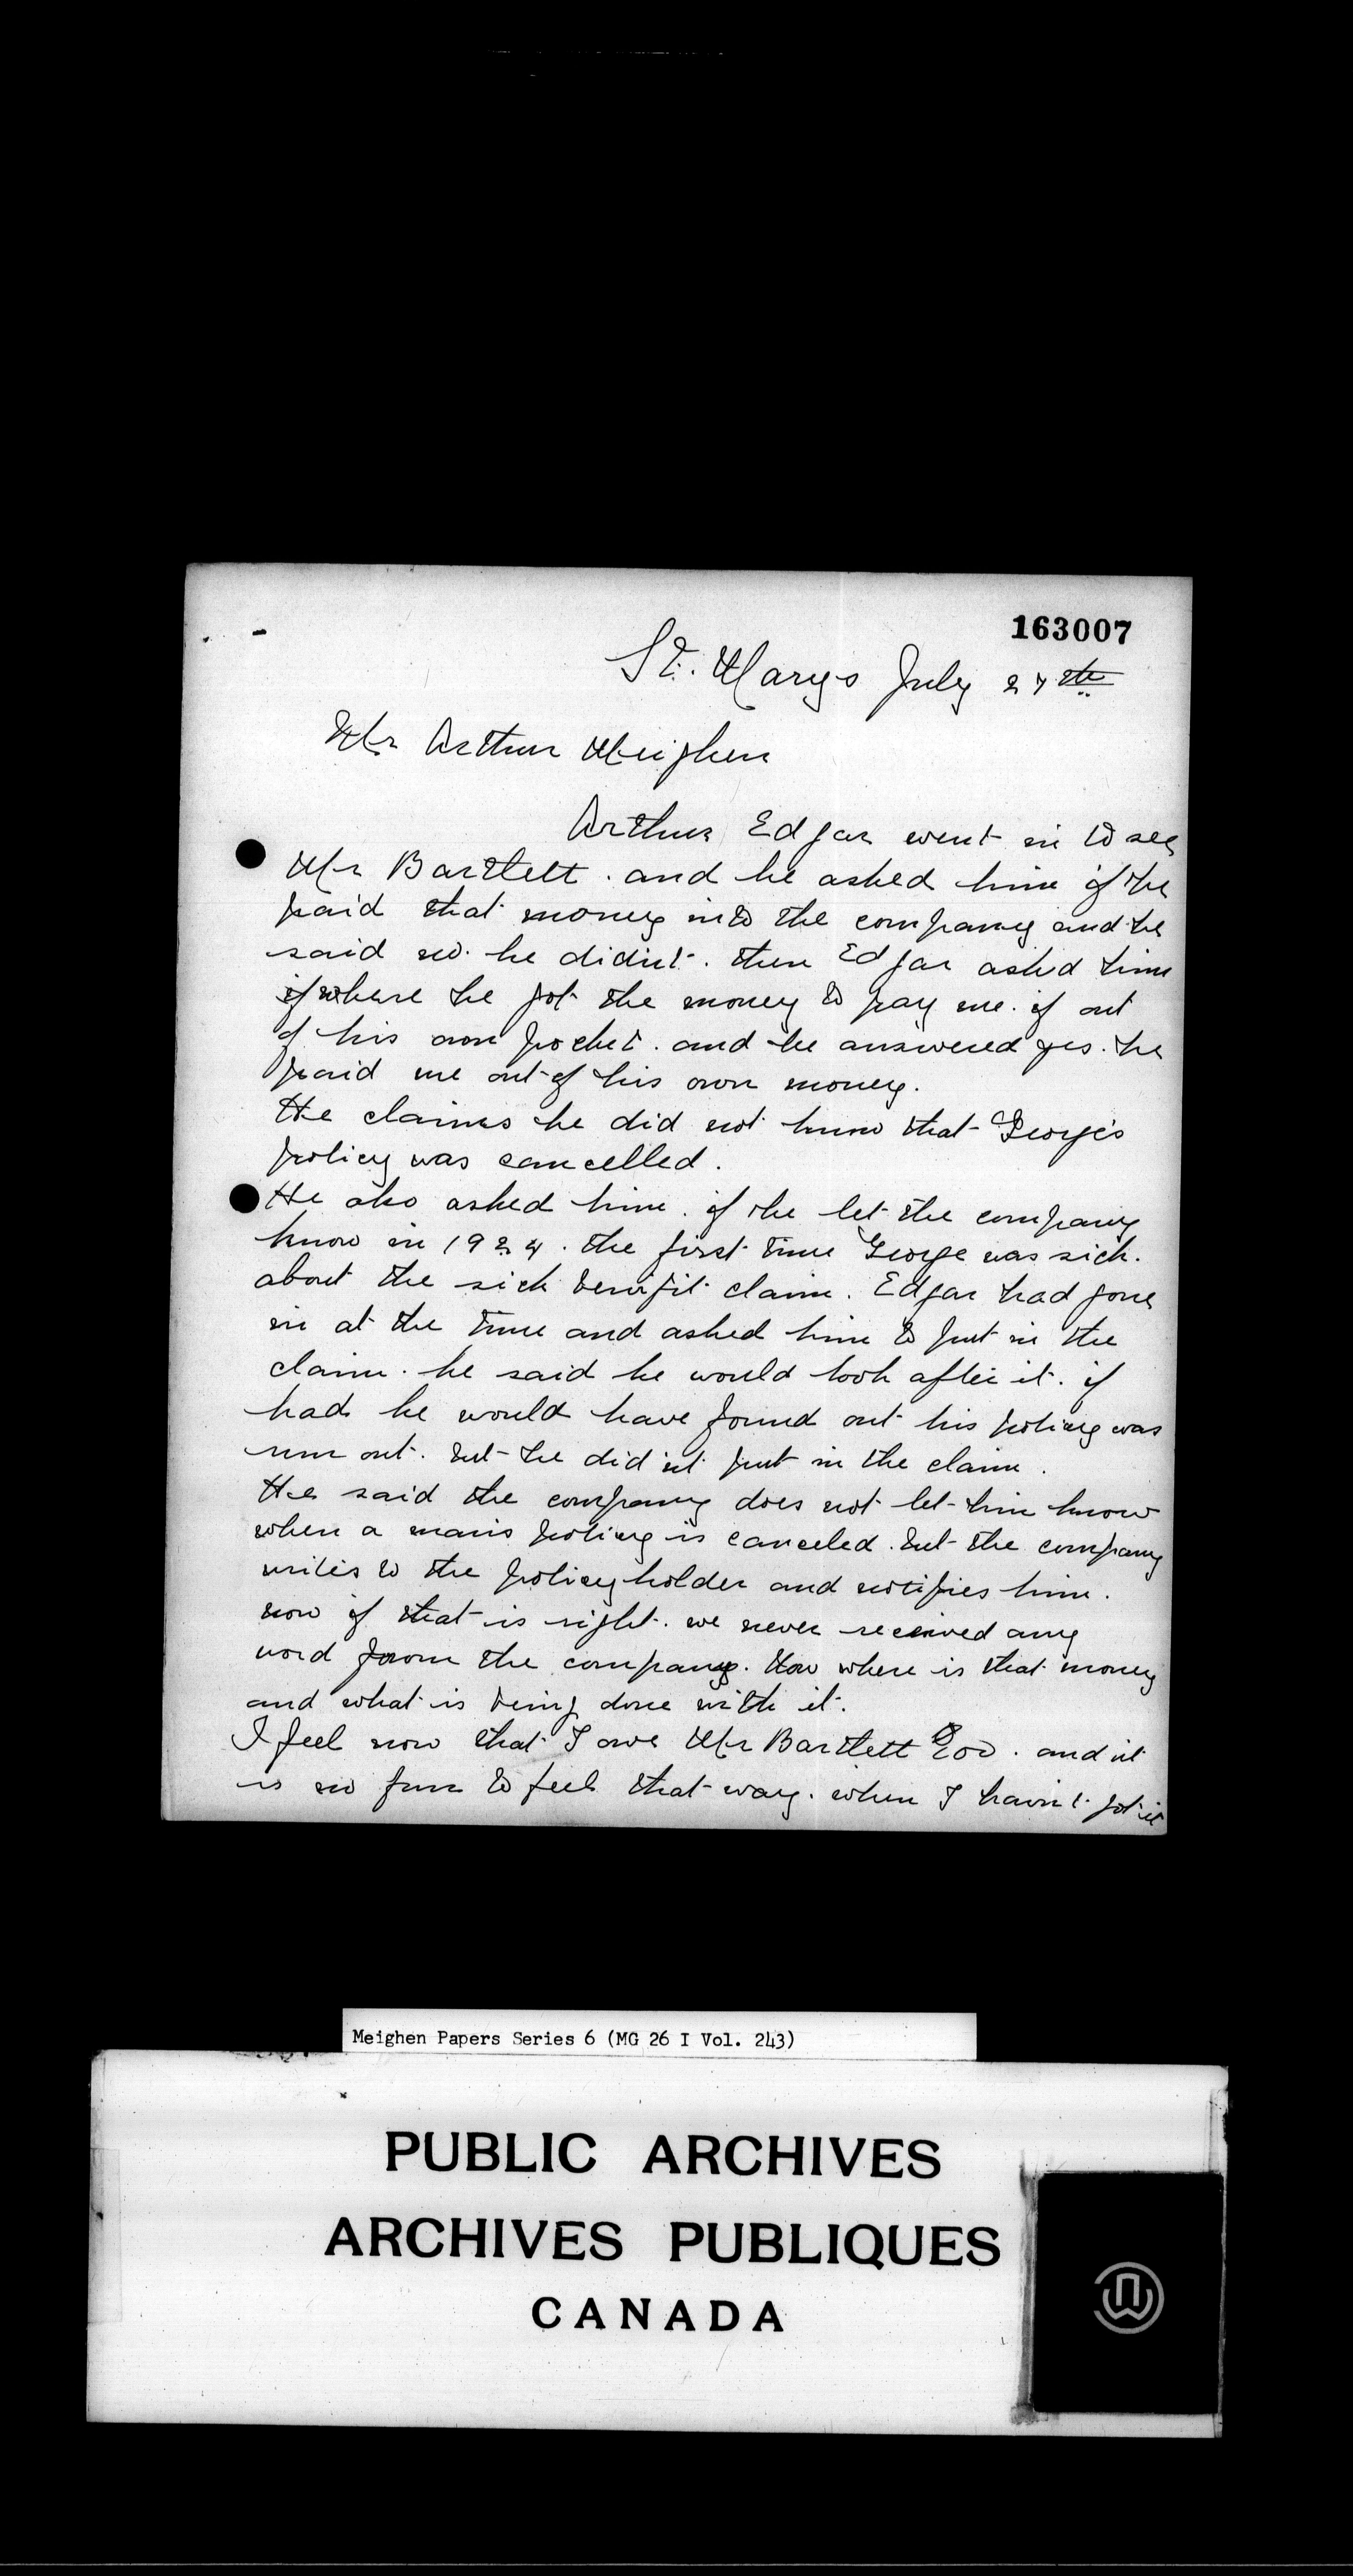 163007
St. Marys July 27th
Mr Arthur Meighen
Arthur Edgar went in to see
Mr Bartlett. and he asked him if he
paid that money into the company and he
said no. he didn't. then Edgar asked him
if where he got the money to pay me. if out
of his own pocket. and he answered yes. he
paid me out of his own money.
He claims he did not know that George's
policy was cancelled.
He also asked him. if he let the company
know in 1924. the first time George was sick.
about the sick benifit claim. Edgar had gone
in at the time and asked him to put in the
claim. he said he would look after it. if
had he would have found out his policy was
run out. but he did nt put in the claim.
He said the company does not let him know
when a man's policy is canceled. but the company
writes to the policyholder and notifies him.
now if that is right. we never received any
word from the company. Now where is that money
and what is being done with it.
I feel now that I owe Mr Bartlett and it
is no fun to feel that way. when I havn't got it
Meighen Papers Series 6 (MG 26 I Vol. 243)
PUBLIC ARCHIVES
ARCHIVES PUBLIQUES
CANADA